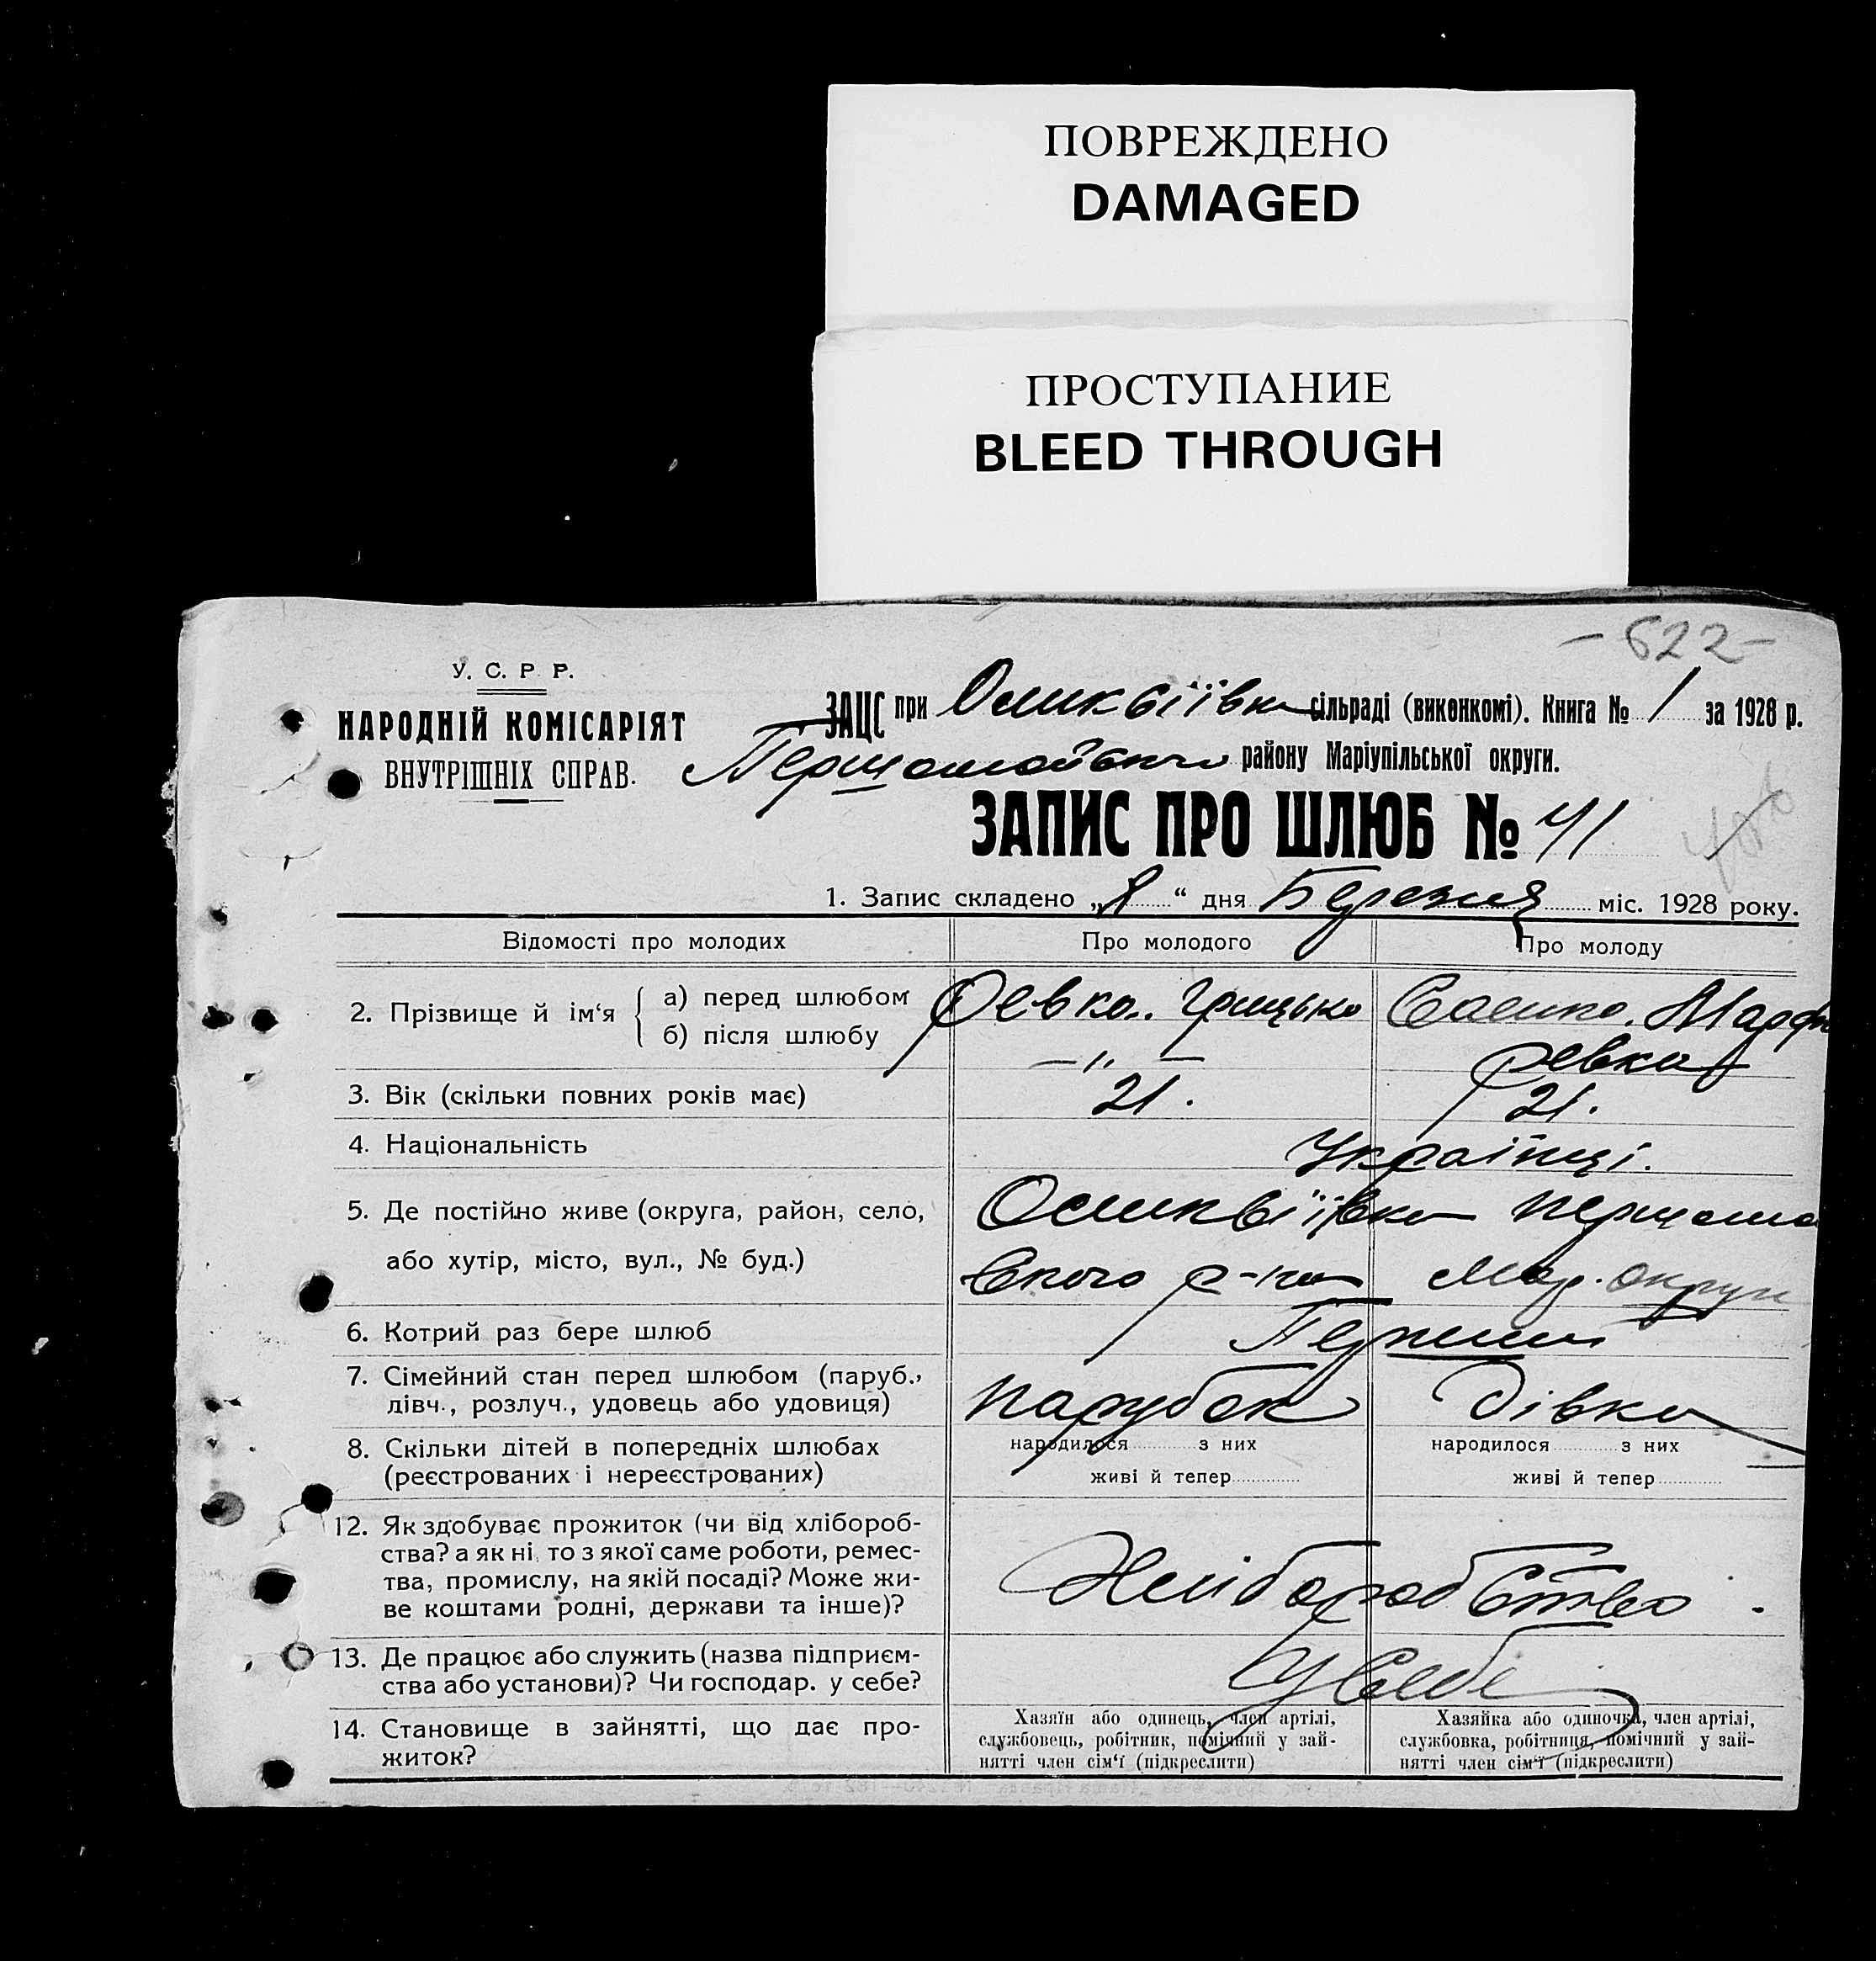 ПОВРЕЖДЕНО
DAMAGED
ПРОСТУПАНИЕ
BLEED THROUGH
- 622 -
У. С. Р. Р.
НАРОДНІЙ КОМІСАРІЯТ
ВНУТРІШНІХ СПРАВ.
ЗАЦС при сільраді (виконкомі). Книга № 1 за 1928 р.
району Маріупільської округи.
ЗАПИС ПРО ШЛЮБ № 41
1. Запис складено „8“ дня Березня міс. 1928 року.
Відомості про молодих
Про молодого
Про молоду
2. Прізвище й ім‘я
а) перед шлюбом
б) після шлюбу
Ревка. Грицько
— " —
Марфа
Ревка
3. Вік (скільки повних років має)
21.
21.
4. Національність
Українці.
5. Де постійно живе (округа, район, село,
або хутір, місто, вул., № буд.)
вського р-на Мар. округи
6. Котрий раз бере шлюб
7. Сімейний стан перед шлюбом (паруб.,
дівч., розлуч., удовець або удовиця)
парубок
Дівка
8. Скільки дітей в попередніх шлюбах
(реєстрованих і нереєстрованих)
народилося з них
живі й тепер
народилося з них
живі й тепер
12. Як здобуває прожиток (чи від хлібороб-
ства? а як ні, то з якої саме роботи, ремес-
тва, промислу, на якій посаді? Може жи-
ве коштами родні, держави та інше)?
Хліборобство.
13. Де працює або служить (назва підприєм-
ства або установи)? Чи господар. у себе?
У себе
14. Становище в зайнятті, що дає про-
житок?
Хазяїн або одинець, член артілі,
службовець, робітник, помічний у зай-
нятті член сім‘ї (підкреслити)
Хазяйка або одиночка, член артілі,
службовка, робітниця, помічний у зай-
нятті член сім‘ї (підкреслити)